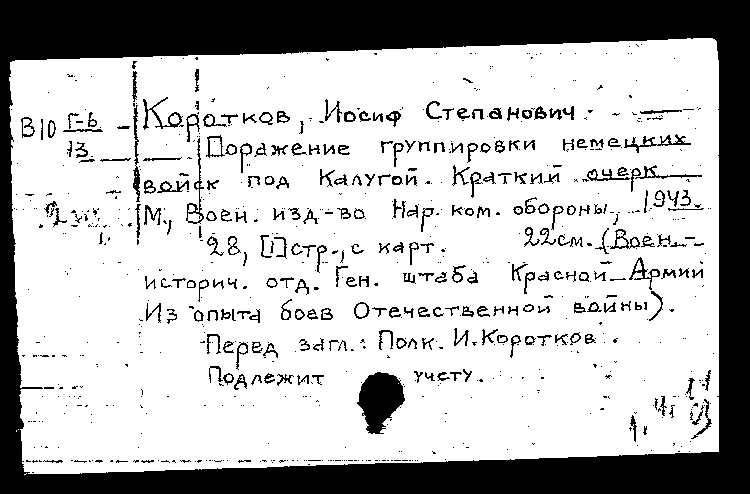 В10 Г-6/13 Коротков, Иосиф Степанович.
Поражение группировки немецких
войск под Калугой. Краткий очерк
М., Воен. изд-во Нар. ком. обороны, 1943.
28, [1] стр., с карт. 22см. (Воен.-
историч. отд. Ген. штаба Красной Армии
Из опыта боев Отечественной войны).
Перед загл.: Полк. И. Коротков.
Подлежит учету.